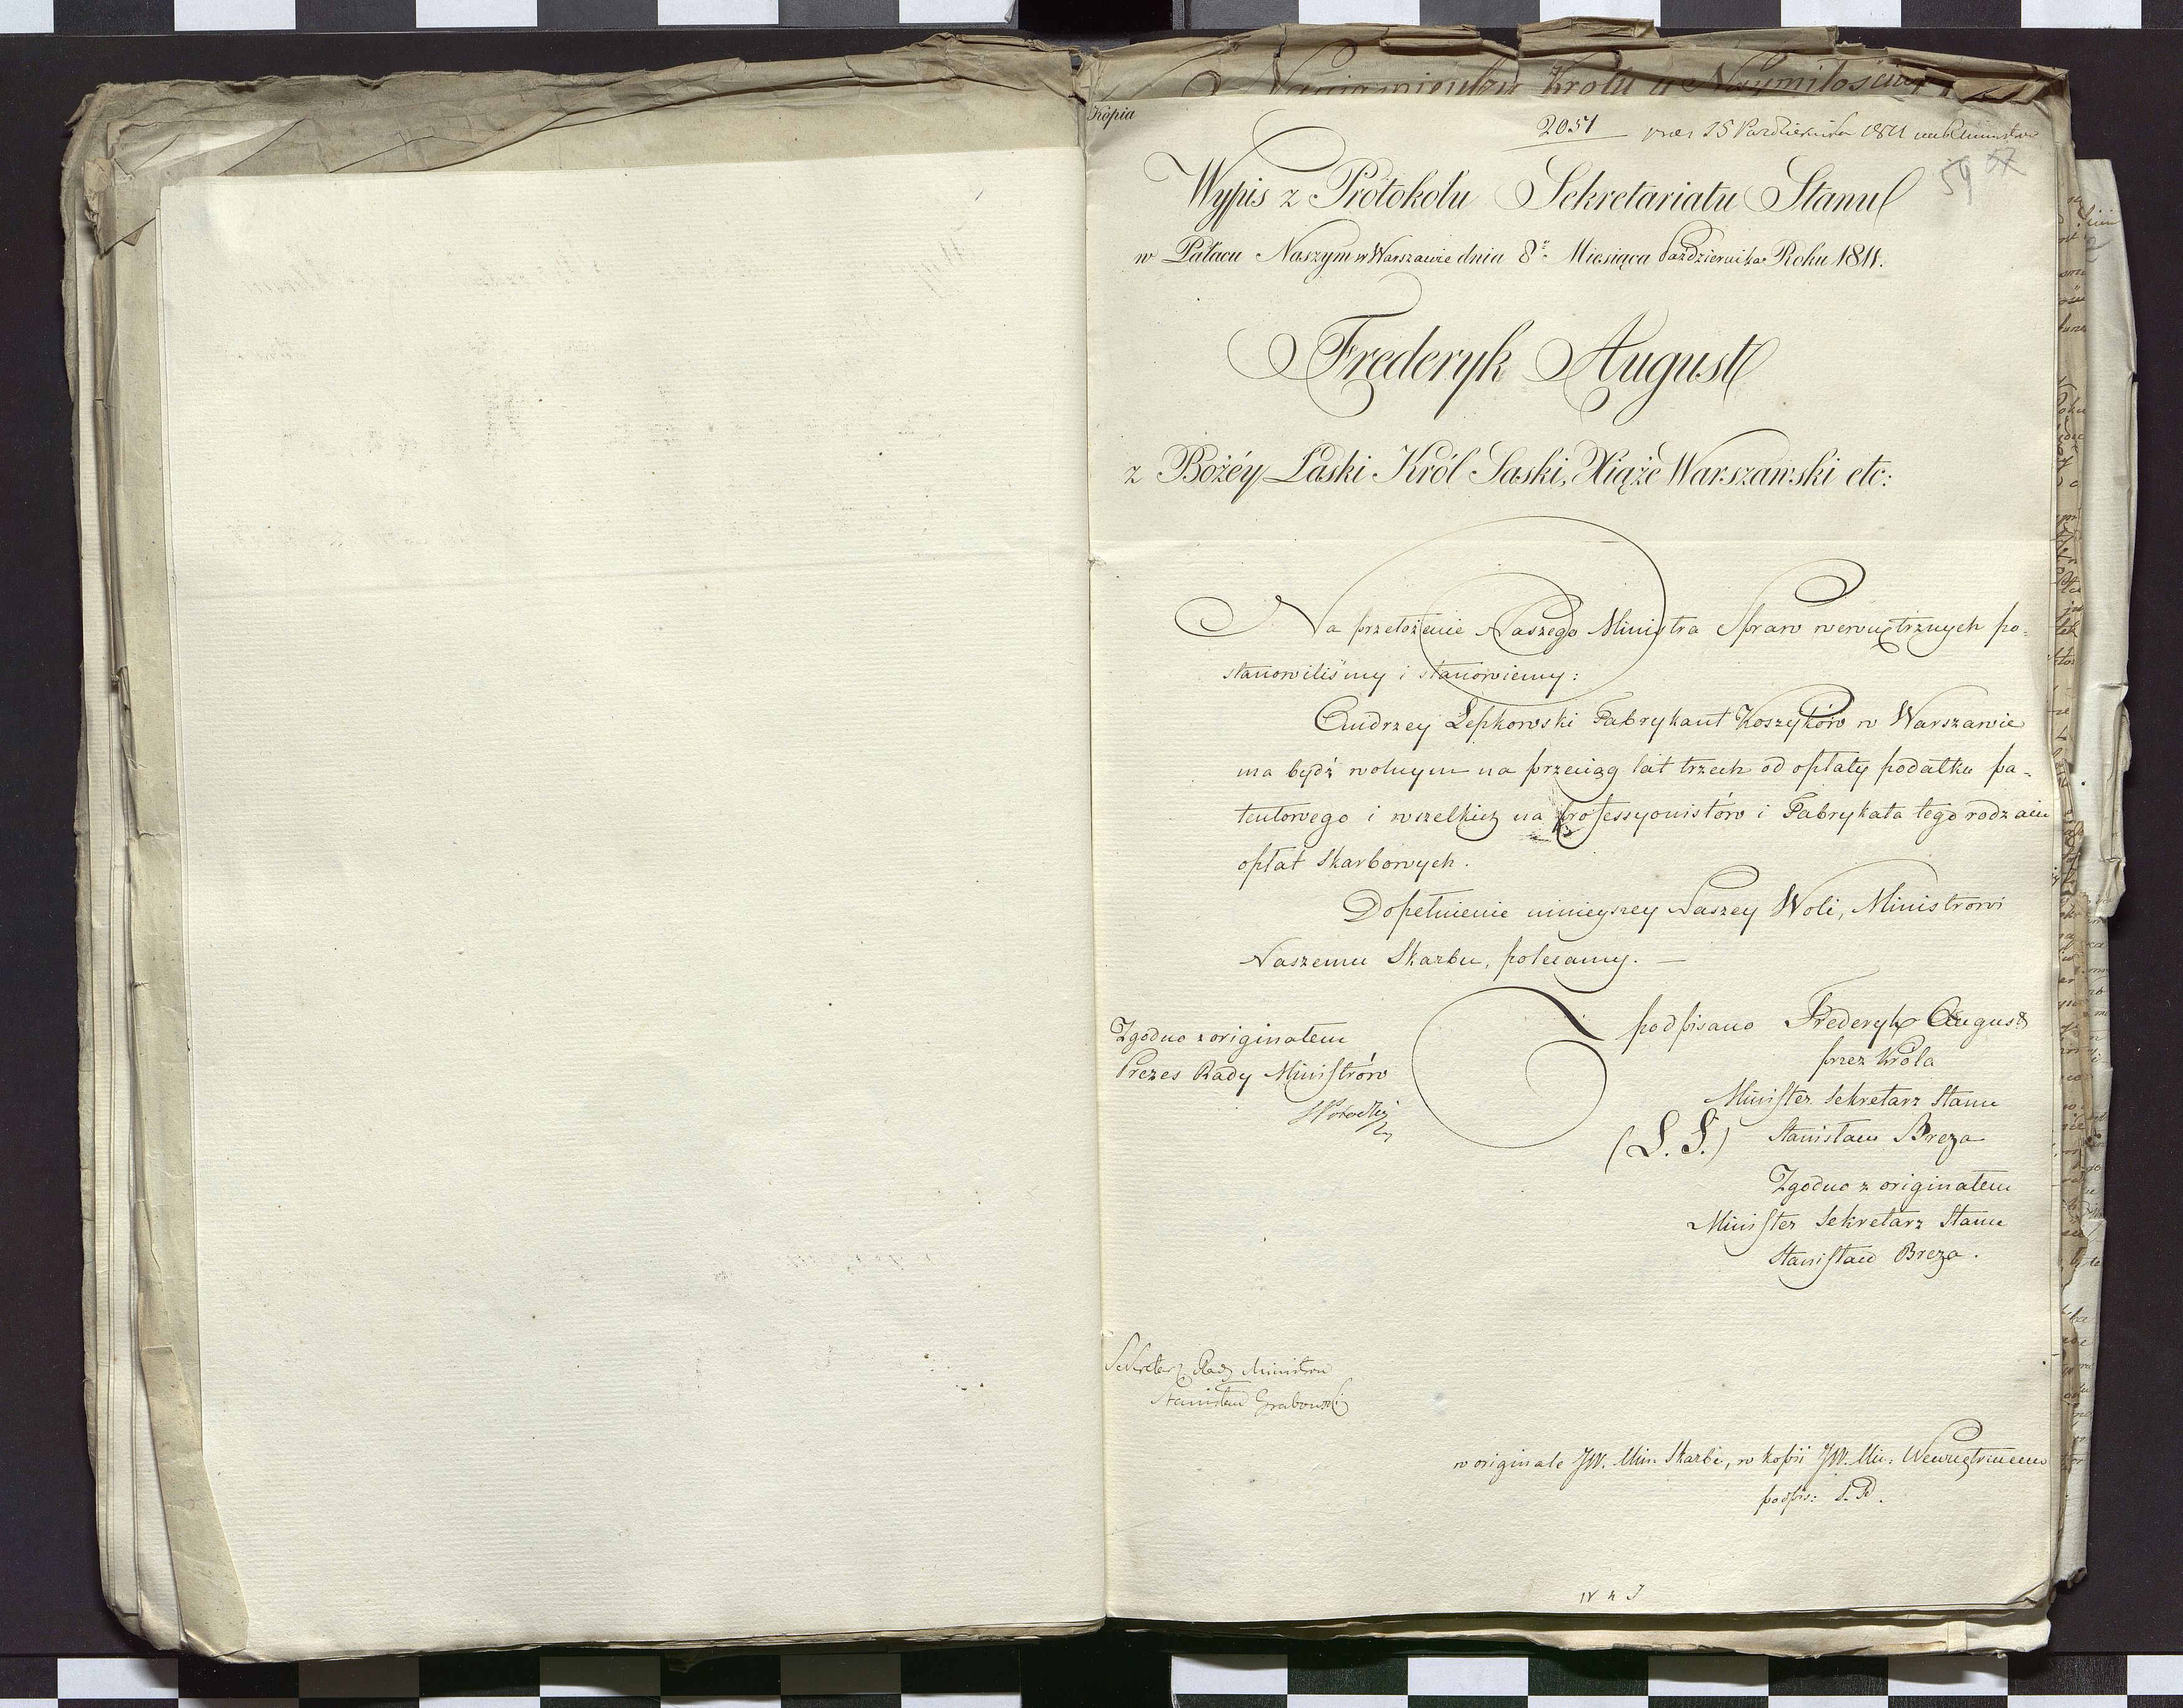 Naÿiaśnieyszy Królu a Naymiłościwszy
Kopia
2051 15 Października 1811
59 57
Wypis z Protokołu Sekretariatu Stanu
w Pałacu Naszym w Warszawie dnia 8. Miesiąca Października Roku 1811.
Frederyk August
z Bożéy Łaski Król Saski, Xiąże Warszawski etc:
Na przełożenie Naszego Ministra Spraw wewnętrznych po=
stanowiliśmy i stanowiemy:
Andrzey Łepkowski Fabrykant Koszyków w Warszawie
ma bydź wolnym na przeciąg lat trzech od opłaty podatku pa=
tentowego i wszelkich na professyonistów i Fabrykata tego rodzaiu
opłat Skarbowych.
Dopełnienie ninieyszey Naszey Woli, Ministrowi
Naszemu Skarbu, polecamy. —
podpisano Frederyk August
przez Króla
Minister Sekretarz Stanu
(L. S.) Stanisław Breza
Zgodno z originałem
Minister Sekretarz Stanu
Stanisław Breza.
Zgodno z originałem
Prezes Rady Ministrów
Sekretarz Rady Ministrów
Stanisław Grabowski
w originale JW. Min. Skarbu, w kopii JW. Min: Wewnętrznemu
podpis: S. P.